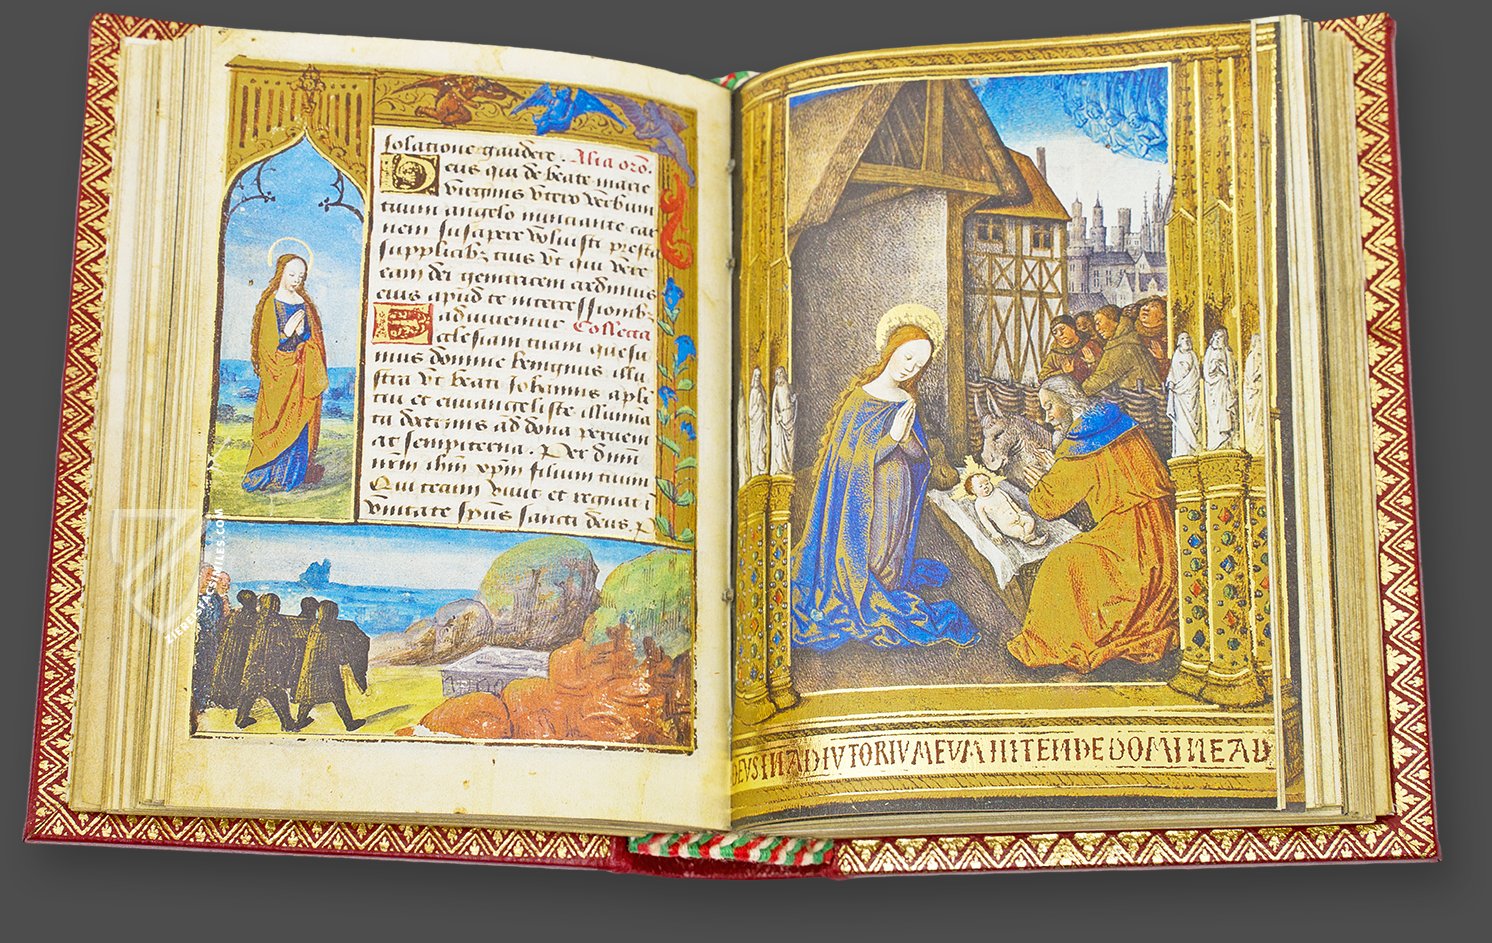 solatione gaudere. Alia orō.
Deus qui de beate marie
virginis vtero verbum
tuum angelo nunciante car
nem suscipere voluisti presta
supplicibꝫ tuis vt qui vere
eam dei genitricem credimus
eius apud te intercessionibꝫ
adiuuemur Collecta
Ecclesiam tuam quesu
mus domine benignus illu
stra vt beati Johannis apłi
tui et euangeliste illumina
ta doctrinis ad dona perueni
at sempiterna. Per dominū
nr̄m ihm̄ xp̄m filium tuum
Qui tecum viuit et regnat ī
vnitate sp̄us sancti deus. P
DEVS IN ADIVTORIVM EVM INTENDE DOMINE AD
ZIEREIS FACSIMILES.COM